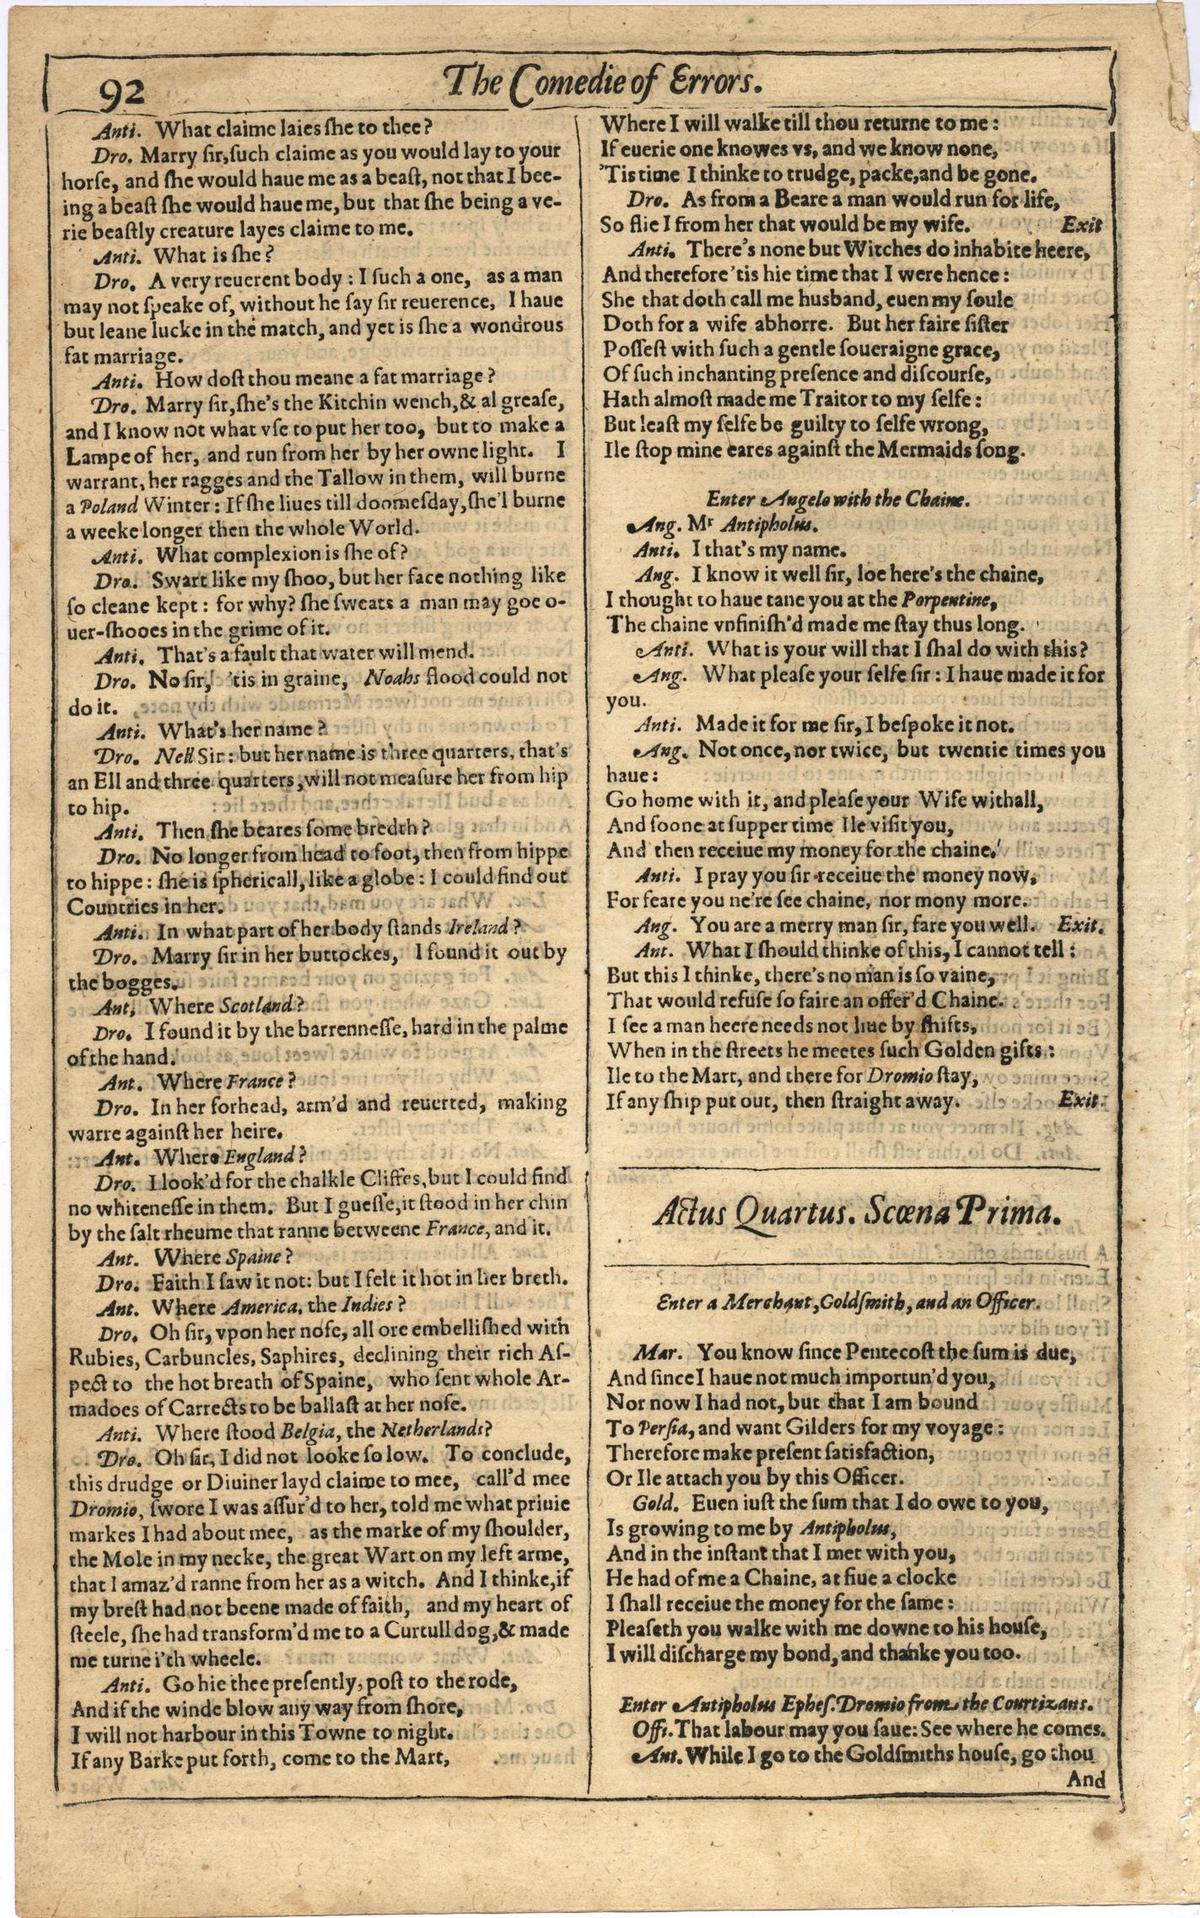 92
The Comedie of Errors.
Anti. What claime laies ſhe to thee?
Dro. Marry ſir, ſuch claime as you would lay to your
horſe, and ſhe would haue me as a beaſt, not that I bee-
ing a beaſt ſhe would haue me, but that ſhe being a ve-
rie beaſtly creature layes claime to me.
Anti. What is ſhe?
Dro. A very reuerent body: I ſuch a one, as a man
may not ſpeake of, without he ſay ſir reuerence, I haue
but leane lucke in the match, and yet is ſhe a wondrous
fat marriage.
Anti. How doſt thou meane a fat marriage?
Dro. Marry ſir, ſhe's the Kitchin wench, & al greaſe,
and I know not what vſe to put her too, but to make a
Lampe of her, and run from her by her owne light. I
warrant, her ragges and the Tallow in them, will burne
a Poland Winter: If ſhe liues till doomeſday, ſhe'l burne
a weeke longer then the whole World.
Anti. What complexion is ſhe of?
Dro. Swart like my ſhoo, but her face nothing like
ſo cleane kept: for why? ſhe ſweats a man may goe o-
uer-ſhooes in the grime of it.
Anti. That's a fault that water will mend.
Dro. No ſir, 'tis in graine, Noahs flood could not
do it.
Anti. What's her name?
Dro. Nell Sir: but her name is three quarters, that's
an Ell and three quarters, will not meaſure her from hip
to hip.
Anti. Then ſhe beares ſome bredth?
Dro. No longer from head to foot, then from hippe
to hippe: ſhe is ſphericall, like a globe: I could find out
Countries in her.
Anti. In what part of her body ſtands Ireland?
Dro. Marry ſir in her buttockes, I found it out by
the bogges.
Ant. Where Scotland?
Dro. I found it by the barrenneſſe, hard in the palme
of the hand.
Ant. Where France?
Dro. In her forhead, arm'd and reuerted, making
warre againſt her heire.
Ant. Where England?
Dro. I look'd for the chalkle Cliffes, but I could find
no whiteneſſe in them. But I gueſſe, it ſtood in her chin
by the ſalt rheume that ranne betweene France, and it.
Ant. Where Spaine?
Dro. Faith I ſaw it not: but I felt it hot in her breth.
Ant. Where America, the Indies?
Dro. Oh ſir, vpon her noſe, all ore embelliſhed with
Rubies, Carbuncles, Saphires, declining their rich Aſ-
pect to the hot breath of Spaine, who ſent whole Ar-
madoes of Carrects to be ballaſt at her noſe.
Anti. Where ſtood Belgia, the Netherlands?
Dro. Oh ſir, I did not looke ſo low. To conclude,
this drudge or Diuiner layd claime to mee, call'd mee
Dromio, ſwore I was aſſur'd to her, told me what priuie
markes I had about mee, as the marke of my ſhoulder,
the Mole in my necke, the great Wart on my left arme,
that I amaz'd ranne from her as a witch. And I thinke, if
my breſt had not beene made of faith, and my heart of
ſteele, ſhe had transform'd me to a Curtull dog, & made
me turne i'th wheele.
Anti. Go hie thee preſently, poſt to the rode,
And if the winde blow any way from ſhore,
I will not harbour in this Towne to night.
If any Barke put forth, come to the Mart,
Where I will walke till thou returne to me:
If euerie one knowes vs, and we know none,
'Tis time I thinke to trudge, packe, and be gone.
Dro. As from a Beare a man would run for life,
So flie I from her that would be my wife. Exit
Anti. There's none but Witches do inhabite heere,
And therefore 'tis hie time that I were hence:
She that doth call me husband, euen my ſoule
Doth for a wife abhorre. But her faire ſiſter
Poſſeſt with ſuch a gentle ſoueraigne grace,
Of ſuch inchanting preſence and diſcourſe,
Hath almoſt made me Traitor to my ſelfe:
But leaſt my ſelfe be guilty to ſelfe wrong,
Ile ſtop mine eares againſt the Mermaids ſong.
Enter Angelo with the Chaine.
Ang. Mr Antipholus.
Anti. I that's my name.
Ang. I know it well ſir, loe here's the chaine,
I thought to haue tane you at the Porpentine,
The chaine vnfiniſh'd made me ſtay thus long.
Anti. What is your will that I ſhal do with this?
Ang. What pleaſe your ſelfe ſir: I haue made it for
you.
Anti. Made it for me ſir, I beſpoke it not.
Ang. Not once, nor twice, but twentie times you
haue:
Go home with it, and pleaſe your Wife withall,
And ſoone at ſupper time Ile viſit you,
And then receiue my money for the chaine.
Anti. I pray you ſir receiue the money now,
For feare you ne're ſee chaine, nor mony more.
Ang. You are a merry man ſir, fare you well. Exit.
Ant. What I ſhould thinke of this, I cannot tell:
But this I thinke, there's no man is ſo vaine,
That would refuſe ſo faire an offer'd Chaine.
I ſee a man heere needs not liue by ſhifts,
When in the ſtreets he meetes ſuch Golden gifts:
Ile to the Mart, and there for Dromio ſtay,
If any ſhip put out, then ſtraight away. Exit.
Actus Quartus. Scœna Prima.
Enter a Merchant, Goldſmith, and an Officer.
Mar. You know ſince Pentecoſt the ſum is due,
And ſince I haue not much importun'd you,
Nor now I had not, but that I am bound
To Perſia, and want Gilders for my voyage:
Therefore make preſent ſatisfaction,
Or Ile attach you by this Officer.
Gold. Euen iuſt the ſum that I do owe to you,
Is growing to me by Antipholus,
And in the inſtant that I met with you,
He had of me a Chaine, at fiue a clocke
I ſhall receiue the money for the ſame:
Pleaſeth you walke with me downe to his houſe,
I will diſcharge my bond, and thanke you too.
Enter Antipholus Epheſ. Dromio from the Courtizans.
Offi. That labour may you ſaue: See where he comes.
Ant. While I go to the Goldſmiths houſe, go thou
And